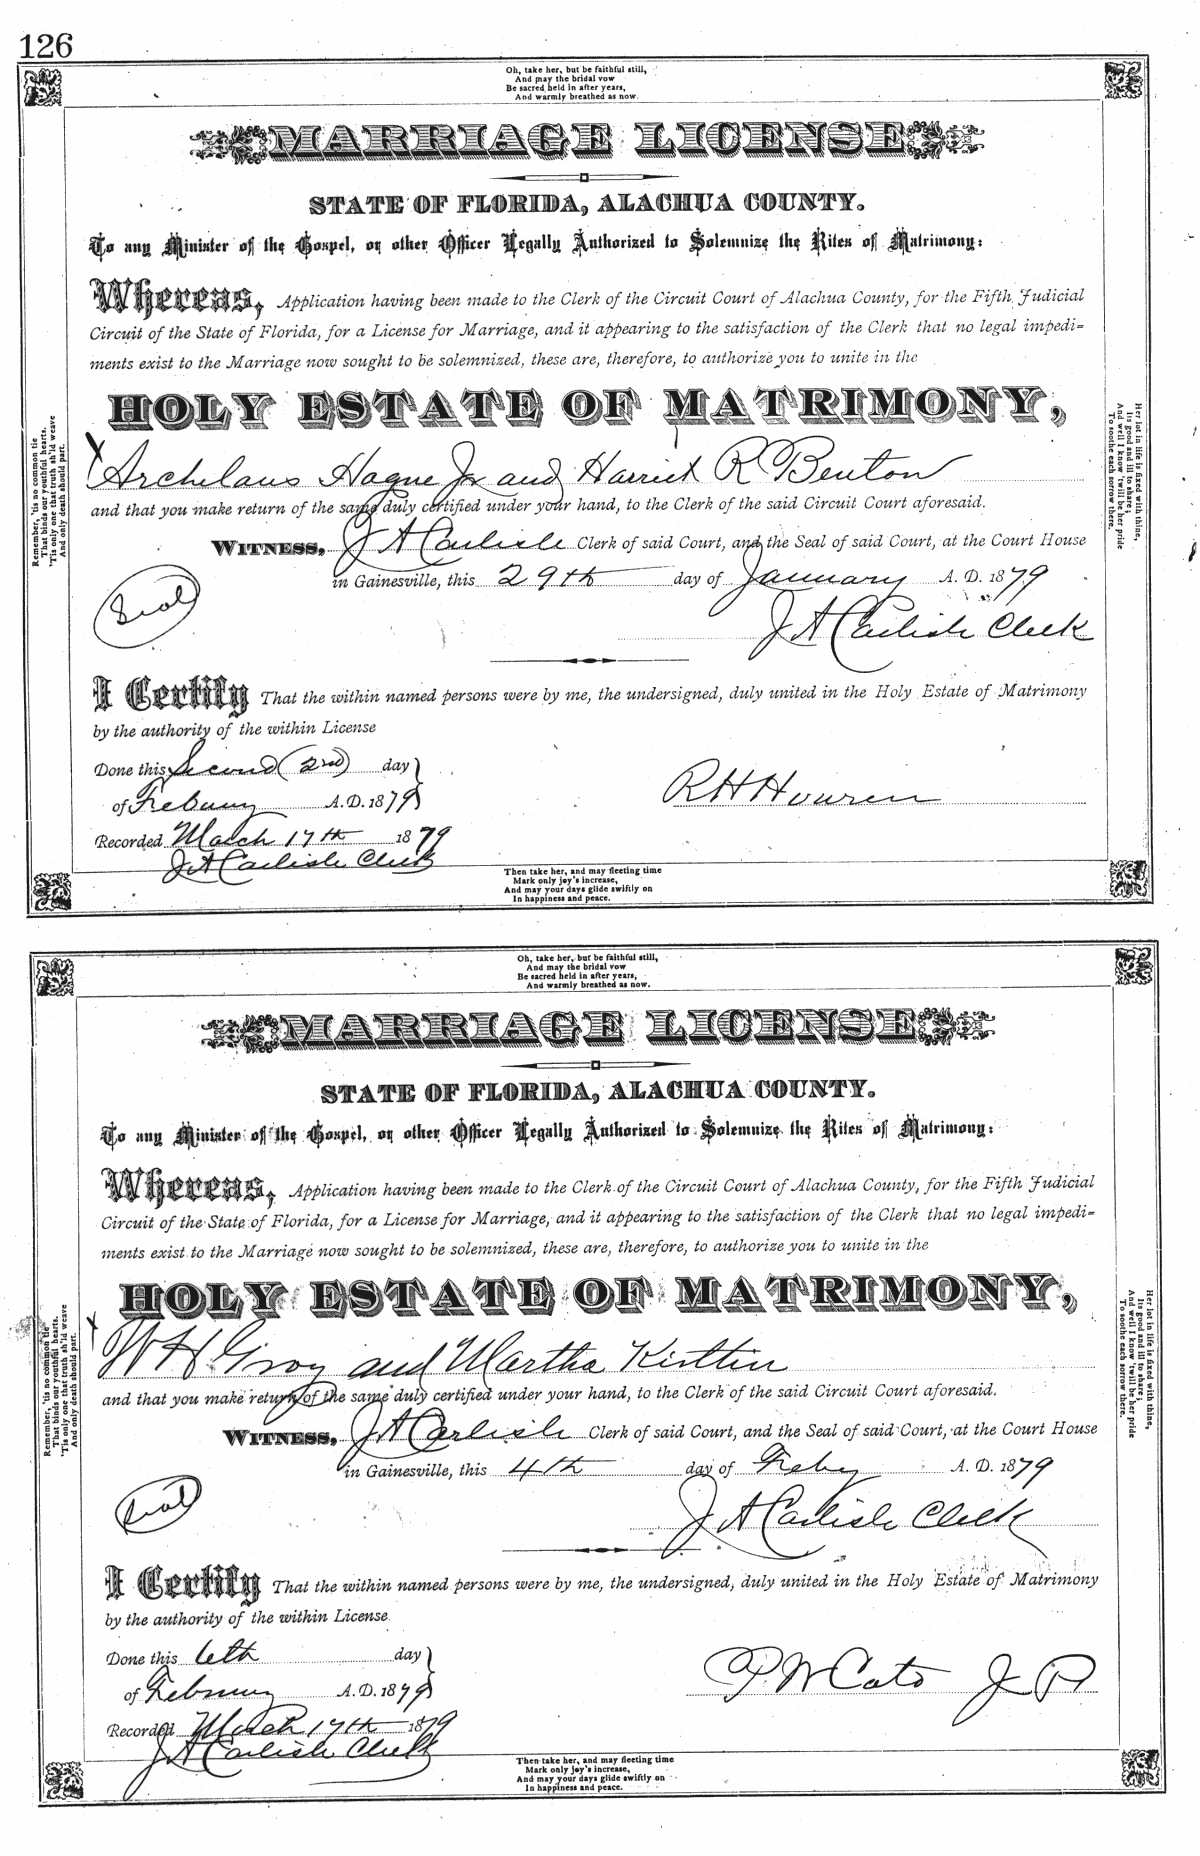 126
Oh, take her, but be faithful still,
And may the bridal vow
Be sacred held in after years,
And warmly breathed as now.
MARRIAGE LICENSE
STATE OF FLORIDA, ALACHUA COUNTY.
To any Minister of the Gospel, or other Officer Legally Authorized to Solemnize the Rites of Matrimony:
Whereas, Application having been made to the Clerk of the Circuit Court of Alachua County, for the Fifth Judicial
Circuit of the State of Florida, for a License for Marriage, and it appearing to the satisfaction of the Clerk that no legal impedi=
ments exist to the Marriage now sought to be solemnized, these are, therefore, to authorize you to unite in the
HOLY ESTATE OF MATRIMONY,
Archelaus Hague Jr and Harriet R Benton
and that you make return of the same duly certified under your hand, to the Clerk of the said Circuit Court aforesaid.
WITNESS, J A Carlisle Clerk of said Court, and the Seal of said Court, at the Court House
in Gainesville, this 29th day of January A. D. 1879
Seal
J A Carlisle Clerk
I Certify That the within named persons were by me, the undersigned, duly united in the Holy Estate of Matrimony
by the authority of the within License
Done this Second (2nd) day
of Febuary A.D. 1879
R H H
Recorded March 17th 1879
J A Carlisle Clerk
Then take her, and may fleeting time
Mark only joy's increase,
And may your days glide swiftly on
In happiness and peace.
Remember, 'tis no common tie
That binds our youthful hearts,
'Tis only one that truth sh'ld weave
And only death should part.
Her lot in life is fixed with thine,
Its good and ill to share;
And well I know 'twill be her pride
To soothe each sorrow there.
Oh, take her, but be faithful still,
And may the bridal vow
Be sacred held in after years,
And warmly breathed as now.
MARRIAGE LICENSE
STATE OF FLORIDA, ALACHUA COUNTY.
To any Minister of the Gospel, or other Officer Legally Authorized to Solemnize the Rites of Matrimony:
Whereas, Application having been made to the Clerk of the Circuit Court of Alachua County, for the Fifth Judicial
Circuit of the State of Florida, for a License for Marriage, and it appearing to the satisfaction of the Clerk that no legal impedi=
ments exist to the Marriage now sought to be solemnized, these are, therefore, to authorize you to unite in the
HOLY ESTATE OF MATRIMONY,
W H and Martha
and that you make return of the same duly certified under your hand, to the Clerk of the said Circuit Court aforesaid.
WITNESS, J A Carlisle Clerk of said Court, and the Seal of said Court, at the Court House
in Gainesville, this 4th day of Feby A. D. 1879
Seal
J A Carlisle Clerk
I Certify That the within named persons were by me, the undersigned, duly united in the Holy Estate of Matrimony
by the authority of the within License.
Done this 6th day
of Febuary A.D. 1879
P W Cato J P
Recorded March 17th 1879
J A Carlisle Clerk
Then take her, and may fleeting time
Mark only joy's increase,
And may your days glide swiftly on
In happiness and peace.
Remember, 'tis no common tie
That binds our youthful hearts,
'Tis only one that truth sh'ld weave
And only death should part.
Her lot in life is fixed with thine,
Its good and ill to share;
And well I know 'twill be her pride
To soothe each sorrow there.